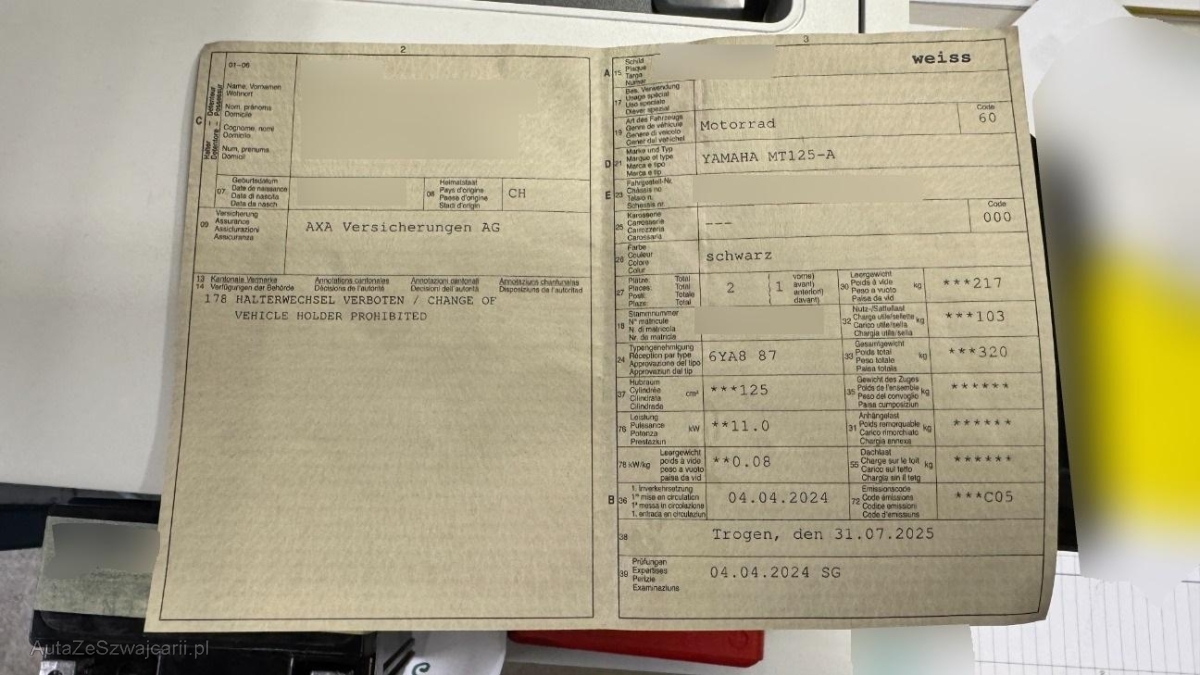 2
01-06
C
Halter - Détenteur
Detentore - Possessur
Name, Vornamen
Wohnort
Nom, prénoms
Domicile
Cognome, nomi
Domicilio
Num, prenums
Domicil
07
Geburtsdatum
Date de naissance
Data di nascita
Data da nasch.
08
Heimatstaat
Pays d'origine
Paese d'origine
Stadi d'origin
CH
09
Versicherung
Assurance
Assicurazioni
Assicuranza
AXA Versicherungen AG
13 Kantonale Vermerke Annotations cantonales Annotazioni cantonali Annotaziuns chantunalas
14 Verfügungen der Behörde Décisions de l'autorité Decisioni dell'autorità Disposiziuns da l'autoritad
178 HALTERWECHSEL VERBOTEN / CHANGE OF
VEHICLE HOLDER PROHIBITED
3
A 15
Schild
Plaque
Targa
Numer
weiss
17
Bes. Verwendung
Usage spécial
Uso speciale
Diever spezial
19
Art des Fahrzeugs
Genre de véhicule
Genere di veicolo
Gener dal vehichel
Motorrad
Code
60
D 21
Marke und Typ
Marque et type
Marca e tipo
Marca e tip
YAMAHA MT125-A
E 23
Fahrgestell-Nr.
Châssis no
Telaio n.
Schassis nr.
25
Karosserie
Carrosserie
Carrozzeria
Carossaria
---
Code
000
26
Farbe
Couleur
Colore
Colur
schwarz
27
Plätze: Total
Places: Total
Posti: Totale
Plazs: Total
2
1
vorne)
avant)
anteriori)
davant)
30
Leergewicht
Poids à vide
Peso a vuoto
Paisa da vid
kg
***217
18
Stammnummer
N° matricule
N. di matricola
Nr. da matricla
32
Nutz-/Sattellast
Charge utile/sellette
Carico utile/sella
Chargia utila/sella
kg
***103
24
Typengenehmigung
Réception par type
Approvazione del tipo
Approvaziun dal tip
6YA8 87
33
Gesamtgewicht
Poids total
Peso totale
Paisa totala
kg
***320
37
Hubraum
Cylindrée
Cilindrata
Cilindrada
cm³
***125
35
Gewicht des Zuges
Poids de l'ensemble
Peso del convoglio
Paisa cumposiziun
kg
******
76
Leistung
Puissance
Potenza
Prestaziun
kW
**11.0
31
Anhängelast
Poids remorquable
Carico rimorchiato
Chargia annexa
kg
******
78 kW/kg
Leergewicht
poids à vide
peso a vuoto
paisa da vid
**0.08
55
Dachlast
Charge sur le toit
Carico sul tetto
Chargia sin il tetg
kg
******
B 36
1. Inverkehrsetzung
1re mise en circulation
1a messa in circolazione
1. entrada en circulaziun
04.04.2024
72
Emissionscode
Code émissions
Codice emissioni
Code d'emissiuns
***C05
38
Trogen, den 31.07.2025
39
Prüfungen
Expertises
Perizie
Examinaziuns
04.04.2024 SG
AutaZeSzwajcarii.pl